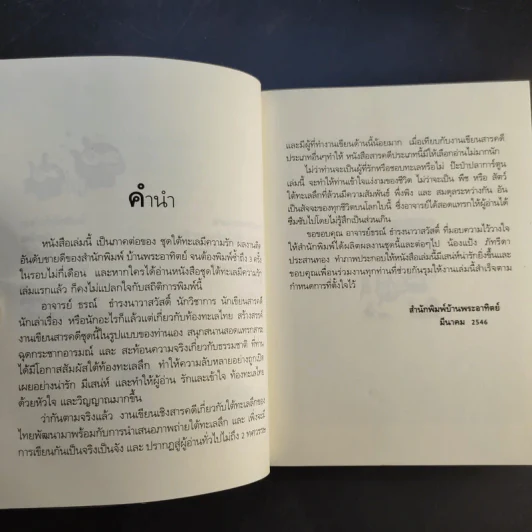 คำนำ
หนังสือเล่มนี้ เป็นภาคต่อของ ชุดใต้ทะเลมีความรัก ผลงานติด
อันดับขายดีของสำนักพิมพ์ บ้านพระอาทิตย์ จนต้องพิมพ์ซ้ำถึง 5 ครั้ง
ในรอบไม่กี่เดือน และหากใครได้อ่านหนังสือชุดใต้ทะเลมีความรัก
เล่มแรกแล้ว ก็คงไม่แปลกใจกับสถิติการพิมพ์นี้
อาจารย์ ธรณ์ ธำรงนาวาสวัสดิ์ นักวิชาการ นักเขียนสารคดี
นักเล่าเรื่อง หรือนักอะไรก็แล้วแต่เกี่ยวกับท้องทะเลไทย สร้างสรรค์
งานเขียนสารคดีชุดนี้ในรูปแบบของท่านเอง สนุกสนานสอดแทรกสาระ
ฉุดกระชากอารมณ์ และ สะท้อนความจริงเกี่ยวกับธรรมชาติ ที่ท่าน
ได้มีโอกาสสัมผัสใต้ท้องทะเลลึก ทำให้ความลับหลายอย่างถูกเปิด
เผยอย่างน่ารัก มีเสน่ห์ และทำให้ผู้อ่าน รักและเข้าใจ ท้องทะเลไทย
ด้วยหัวใจ และวิญญาณมากขึ้น
ว่ากันตามจริงแล้ว งานเขียนเชิงสารคดีเกี่ยวกับใต้ทะเลลึกของ
ไทยพัฒนามาพร้อมกับการนำเสนอภาพถ่ายใต้ทะเลลึก และ เพิ่งจะมี
การเขียนกันเป็นจริงเป็นจัง และ ปรากฏสู่ผู้อ่านทั่วไปไม่ถึง 2 ทศวรรษ
และมีผู้ที่ทำงานเขียนด้านนี้น้อยมาก เมื่อเทียบกับงานเขียนสารคดี
ประเภทอื่นๆทำให้ หนังสือสารคดีประเภทนี้มีให้เลือกอ่านไม่มากนัก
ไม่ว่าท่านจะเป็นผู้ที่รักหรือชอบทะเลหรือไม่ ปะป๊าปลาการ์ตูน
เล่มนี้ จะทำให้ท่านเข้าใจแง่งามของชีวิต ไม่ว่าจะเป็น พืช หรือ สัตว์
ใต้ทะเลลึกที่ล้วนมีความสัมพันธ์ พึ่งพิง และ สมดุลระหว่างกัน อัน
เป็นสัจจะของทุกชีวิตบนโลกใบนี้ ซึ่งอาจารย์ได้สอดแทรกให้ผู้อ่านได้
ซึมซับไปโดยไม่รู้สึกเป็นส่วนเกิน
ขอขอบคุณ อาจารย์ธรณ์ ธำรงนาวาสวัสดิ์ ที่มอบความไว้วางใจ
ให้สำนักพิมพ์ได้ผลิตผลงานชุดนี้และต่อๆไป น้องแป้ง ภัทรีดา
ประสานทอง ทำภาพประกอบให้หนังสือเล่มนี้มีเสน่ห์น่ารักยิ่งขึ้นและ
ขอบคุณเพื่อนร่วมงานทุกท่านที่ช่วยกันรุมให้งานเล่มนี้สำเร็จตาม
กำหนดการที่ตั้งใจไว้
สำนักพิมพ์บ้านพระอาทิตย์
มีนาคม 2546